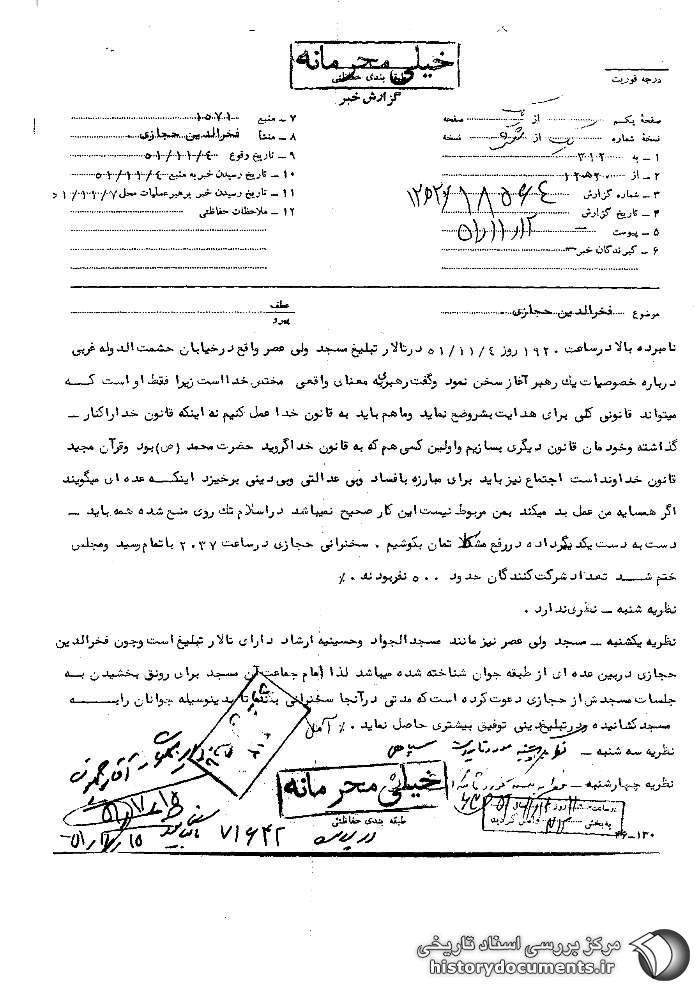 خیلی محرمانه
طبقه بندی حفاظتی
گزارش خبر
درجه فوریت
صفحهٔ یکم از یک صفحه
نسخهٔ شماره یک از نسخه
۱ - به ۳۱۲
۲ - از ۱۲ه۲۰
۳ - شماره گزارش
۴ - تاریخ گزارش
۵ - پیوست
۶ - گیرندگان خبر -
۷ - منبع ۱۵۷۱
۸ - منشأ فخرالدین حجازی
۹ - تاریخ وقوع ۵۱/۱۱/۴
۱۰ - تاریخ رسیدن خبر به منبع ۵۱/۱۱/۴
۱۱ - تاریخ رسیدن خبر برهبر عملیات محل ۵۱/۱۱/۷
۱۲ - ملاحظات حفاظتی
موضوع فخرالدین حجازی
عطف
پیرو
نامبرده بالا در ساعت ۱۹۲۰ روز ۵۱/۱۱/۴ در تالار تبلیغ مسجد ولی عصر واقع در خیابان حشمت الدوله غربی
درباره خصوصیات یک رهبر آغاز سخن نمود وگفت رهبری به معنای واقعی مختص خدا است زیرا فقط او است که
میتواند قانونی کلی برای هدایت بشر وضع نماید وماهم باید به قانون خدا عمل کنیم نه اینکه قانون خدا را کنار -
گذاشته وخودمان قانون دیگری بسازیم واولین کسی هم که به قانون خدا گروید حضرت محمد (ص) بود وقرآن مجید
قانون خداوند است اجتماع نیز باید برای مبارزه بافساد وبی عدالتی وبی دینی برخیزد اینکه عده ای میگویند
اگر همسایه من عمل بد میکند بمن مربوط نیست این کار صحیح نمیباشد در اسلام تک روی منع شده همه باید -
دست به دست یکدیگر داده در رفع مشکلاتمان بکوشیم . سخنرانی حجازی در ساعت ۲۰۳۷ با تمام رسید ومجلس
ختم شد تعداد شرکت کنندگان حدود ۵۰۰ نفر بودند . ٪
نظریه شنبه - نظری ندارد .
نظریه یکشنبه - مسجد ولی عصر نیز مانند مسجد الجواد وحسینیه ارشاد دارای تالار تبلیغ است وچون فخرالدین
حجازی دربین عده ای از طبقه جوان شناخته شده میباشد لذا امام جماعت آن مسجد برای رونق بخشیدن به
جلسات مسجدش از حجازی دعوت کرده است که مدتی در آنجا سخنرانی بکند تا بدینوسیله جوانان را به
مسجد کشانیده ودر تبلیغ دینی توفیق بیشتری حاصل نماید . ٪
نظریه سه شنبه -
نظریه چهارشنبه -
خیلی محرمانه
طبقه بندی حفاظتی
۷۱۶۴۲
۳۶-۱۲۰
مرکز بررسی اسناد تاریخی
historydocuments.ir